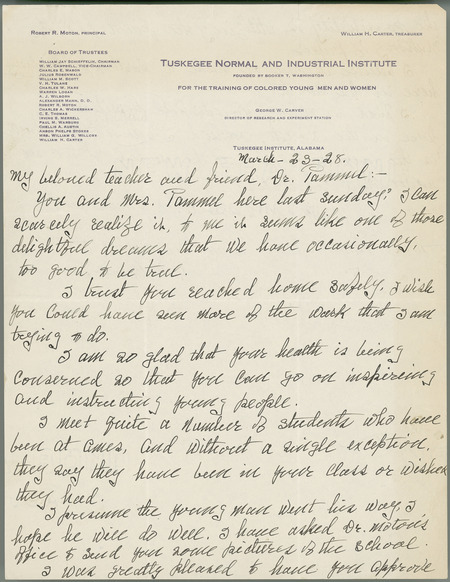 ROBERT R. MOTON, PRINCIPAL
WILLIAM H. CARTER, TREASURER
BOARD OF TRUSTEES
WILLIAM JAY SCHIEFFELIN, CHAIRMAN
W. W. CAMPBELL, VICE-CHAIRMAN
CHARLES E. MASON
JULIUS ROSENWALD
WILLIAM M. SCOTT
V. H. TULANE
CHARLES W. HARE
WARREN LOGAN
A. J. WILBORN
ALEXANDER MANN, D. D.
ROBERT R. MOTON
CHARLES A. WICKERSHAM
C. E. THOMAS
IRVING S. MERRELL
PAUL M. WARBURG
CHELLIS A. AUSTIN
ANSON PHELPS STOKES
MRS. WILLIAM G. WILLCOX
WILLIAM H. CARTER
TUSKEGEE NORMAL AND INDUSTRIAL INSTITUTE
FOUNDED BY BOOKER T. WASHINGTON
FOR THE TRAINING OF COLORED YOUNG MEN AND WOMEN
GEORGE W. CARVER
DIRECTOR OF RESEARCH AND EXPERIMENT STATION
TUSKEGEE INSTITUTE, ALABAMA
March - 23 - 28.
My beloved teacher and friend, Dr. Pammel:-
You and Mrs. Pammel here last Sunday? I can
scarcely realize it, to me it seems like one of those
delightful dreams that we have occasionally,
too good to be true.
I trust you reached home safely. I wish
you could have seen more of the work that I am
trying to do.
I am so glad that your health is being
conserved so that you can go on inspireing
and instructing young people.
I meet quite a number of students who have
been at Ames, and without a single exception,
they say they have been in your class or wished
they had.
I presume the young man went his way, I
hope he will do well. I have asked Dr. Moton's
office to send you some pictures of the School
I was greatly pleased to have you approve